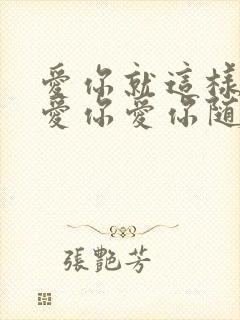 愛你就這樣
愛你愛你随
張艷芳